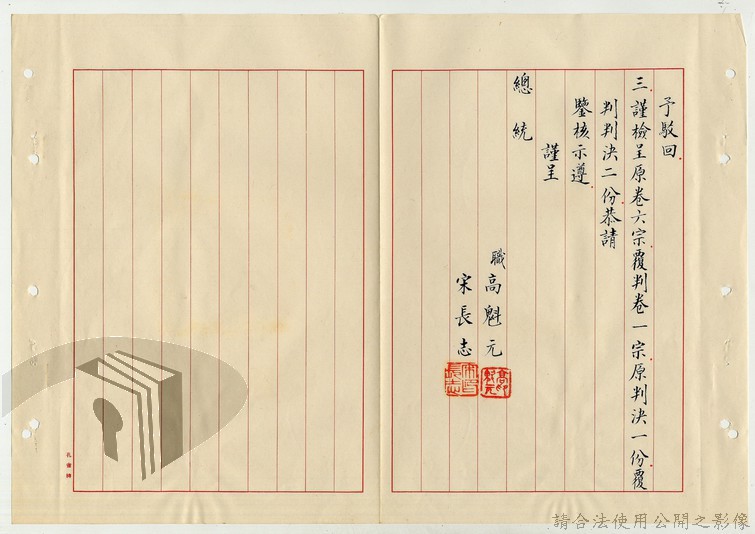 予駁回
三謹檢呈原卷六宗覆判卷一宗原判決一份覆
判判決二份恭請
鑒核示遵
謹呈
總統
職高魁元
宋長志
請合法使用公開之影像